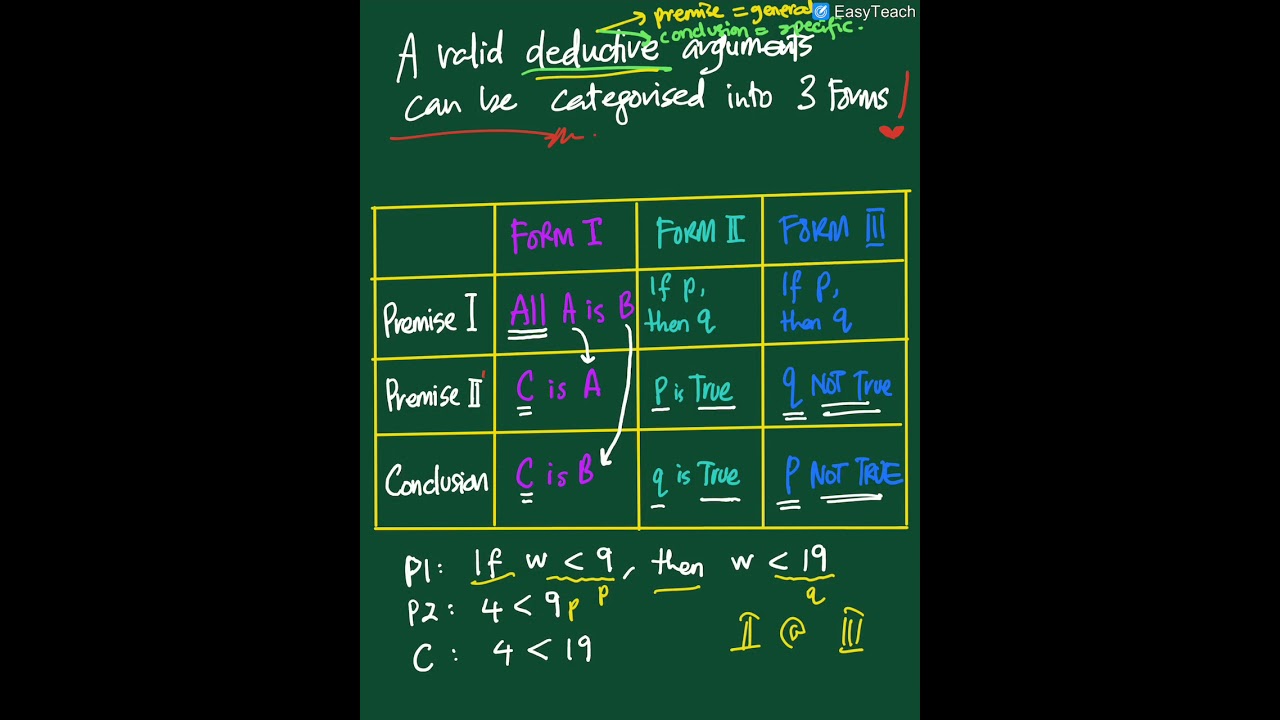 premise = general
EasyTeach
conclusion = specific.
A valid deductive arguments
can be categorised into 3 Forms
FORM I
FORM II
FORM III
Premise I
All A is B
If p,
then q
If p,
then q
Premise II
C is A
p is True
q NOT True
Conclusion
C is B
q is True
p NOT TRUE
P1: If w < 9, then w < 19
p
q
P2: 4 < 9 p
II @ III
C : 4 < 19